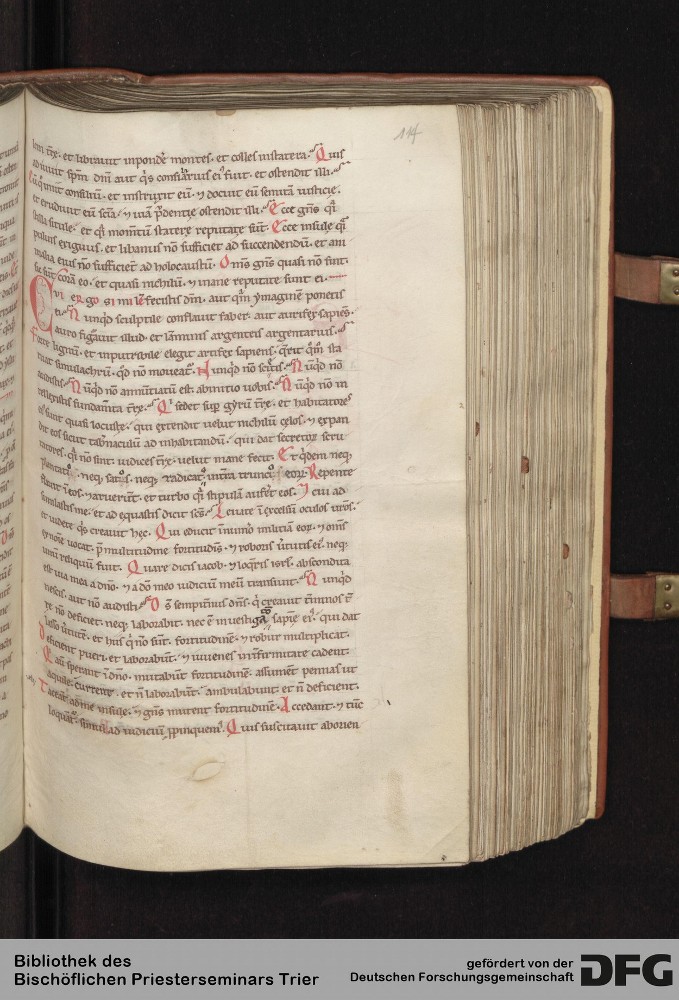 114
lem tre. et libravit inpondere montes. et colles in statera. Quis
adiuvit spm dni aut qis consiliarius ei fuit. et ostendit illi.
consiliu. et instruxit eu. ⁊ docuit eu semita iusticie.
et erudivit eu scia. ⁊ via prudentie ostendit illi. Ecce gens qi
stilla situle. et qi momtu statere reputate sut. Ecce insule qi
pulvis exiguus. et libanus no sufficiet ad succendendu. et ani
malia eius no sufficient ad holocaustu. Oms gens quasi non sint.
sic sut cora eo. et quasi nichilu. ⁊ inane reputate sunt ei.
Cui ergo similem fecistis dm. aut qm ymagine ponetis
ei. Nunqd sculptile conflavit faber. aut aurifex sapies.
auro figavit illud. et laminis argenteis argentarius.
Forte lignu. et inputribile elegit artifex sapiens. qrit qm sta
tuat simulachru. qd no moveat. Nunqd no scitis. Nuqd no
audistis. Nuqd no annutiatu est ab initio vobis. Nuqd no in
tellexistis fundamta tre. Qi sedet sup gyru tre. et habitatores
ei sunt quasi locuste. qui extendit velut nichilu celos. ⁊ expan
dit eos sicut tabnaculu ad inhabitandu. qui dat secretor scru
tatores. qi no sint. iudices tre. velut inane fecit. Et qdem neq;
plantatos. neq; satos. neq; radicato in tra trunco eor. Repente
flavit i eos. ⁊ aruerut. et turbo qi stipula aufert eos. Et cui ad
similastis me. et adequastis dicit scs. Levate i excelsu oculos vros.
et videte qs creavit hec. Qui educit in numo militia eor. ⁊ oms
ex noie vocat. p multitudine fortitudinis. ⁊ roboris virtutis ei. neq;
unu reliquu fuit. Quare dicis iacob. ⁊ loqris isrl. abscondita
est via mea a dno. ⁊ a do meo iudiciu meu transivit. Nunqd
nescis. aut no audisti. Ds sempitnus dns. q creavit tminos tre
no deficiet. neq; laborabit. nec e investigatio sapie ei. qui dat
lasso virtute. et his qi no sut. fortitudine. ⁊ robur multiplicat.
Deficient pueri. et laborabut. ⁊ iuvenes in infirmitate cadent.
Qi aut sperant i dno. mutabut fortitudine. assument pennas ut
aquile. current. et n laborabut. ambulabunt et n deficient.
Taceat ad me insule. ⁊ gens mutent fortitudine. Accedant. ⁊ tuc
loquat. simul ad iudiciu ppinquem. Quis suscitavit ab orien
Bibliothek des
Bischöflichen Priesterseminars Trier
gefördert von der
Deutschen Forschungsgemeinschaft
DFG